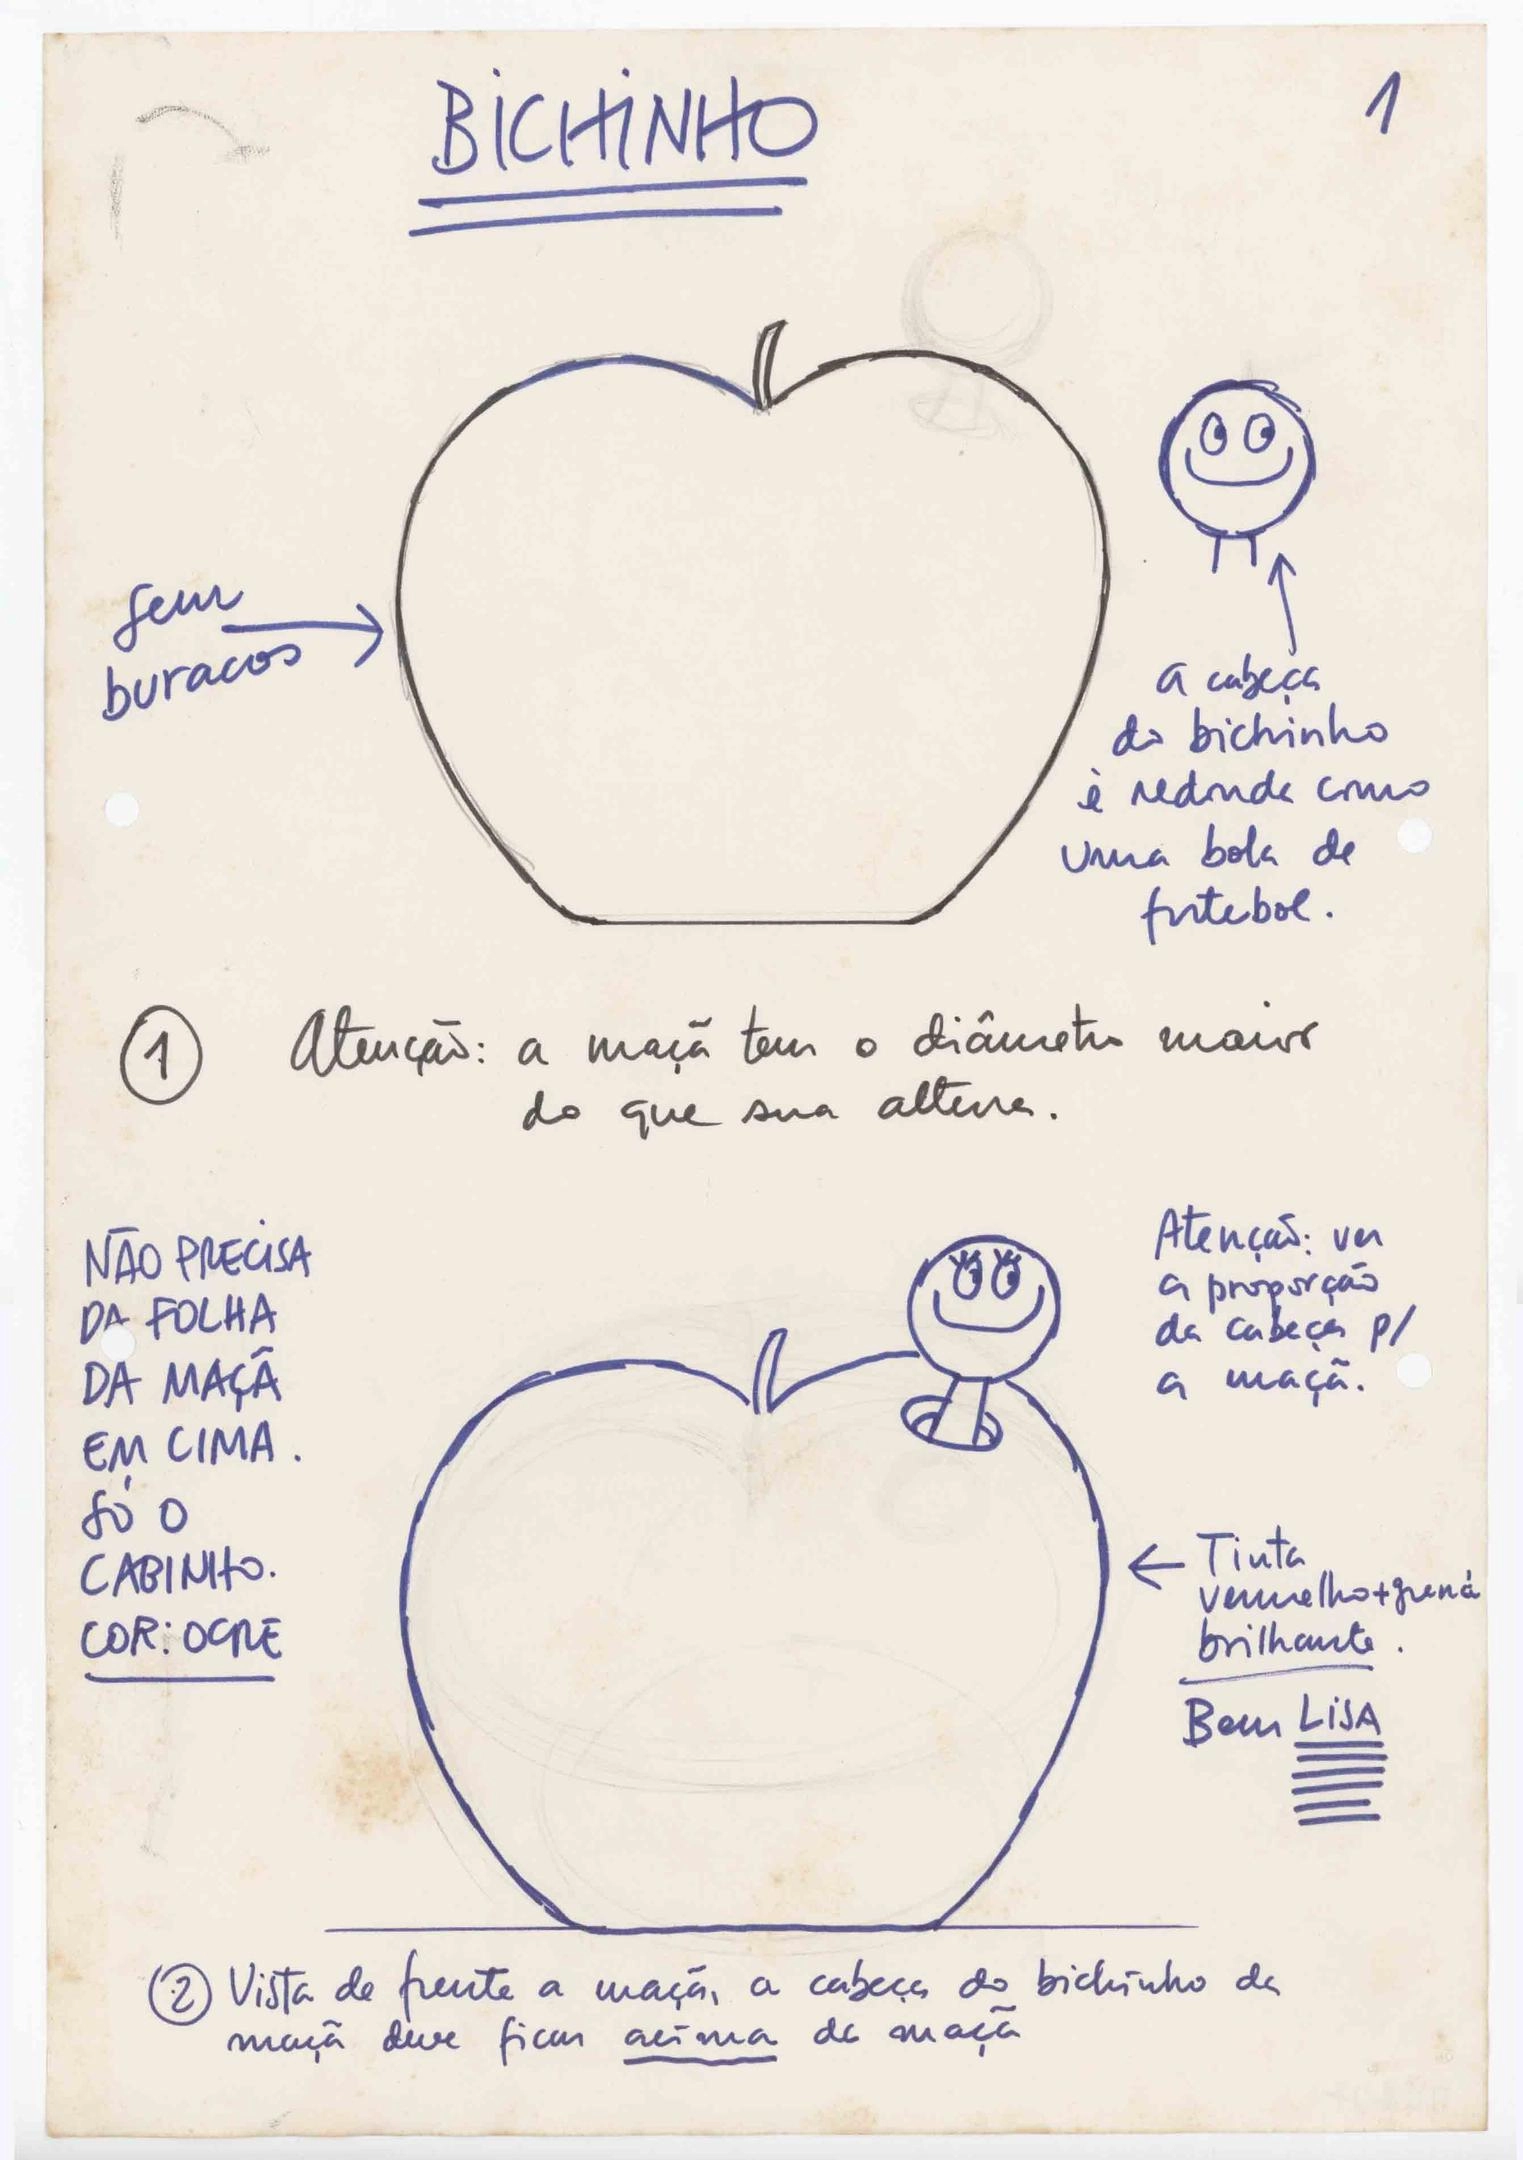 BICHINHO
1
Sem
buracos
a cabeça
do bichinho
é redonda como
uma bola de
futebol.
1 Atenção: a maçã tem o diâmetro maior
do que sua altura.
NÃO PRECISA
DA FOLHA
DA MAÇÃ
EM CIMA.
SÓ O
CABINHO.
COR: OCRE
Atenção: ver
a proporção
da cabeça p/
a maçã.
Tinta
vermelho+grená
brilhante.
Bem LISA
2 Vista de frente a maçã, a cabeça do bichinho da
maçã deve ficar acima da maçã